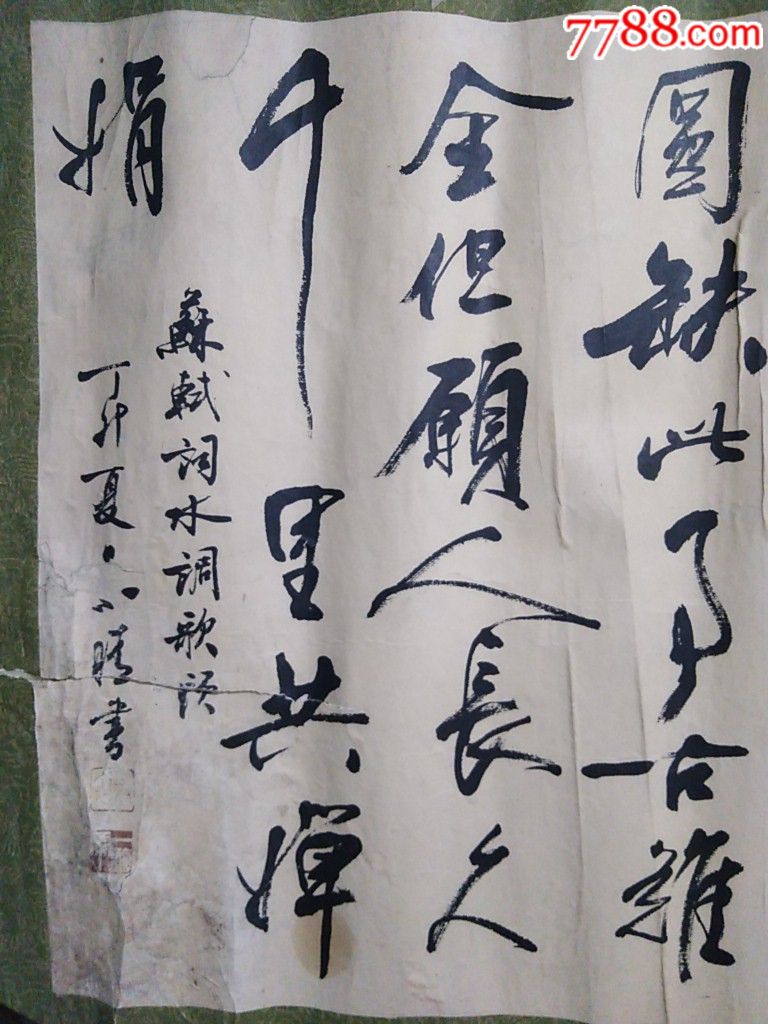 7788.com
圆缺此事古難
全但願人長久
千里共婵
娟
蘇軾詞水調歌頭
丁丑夏日小晴書